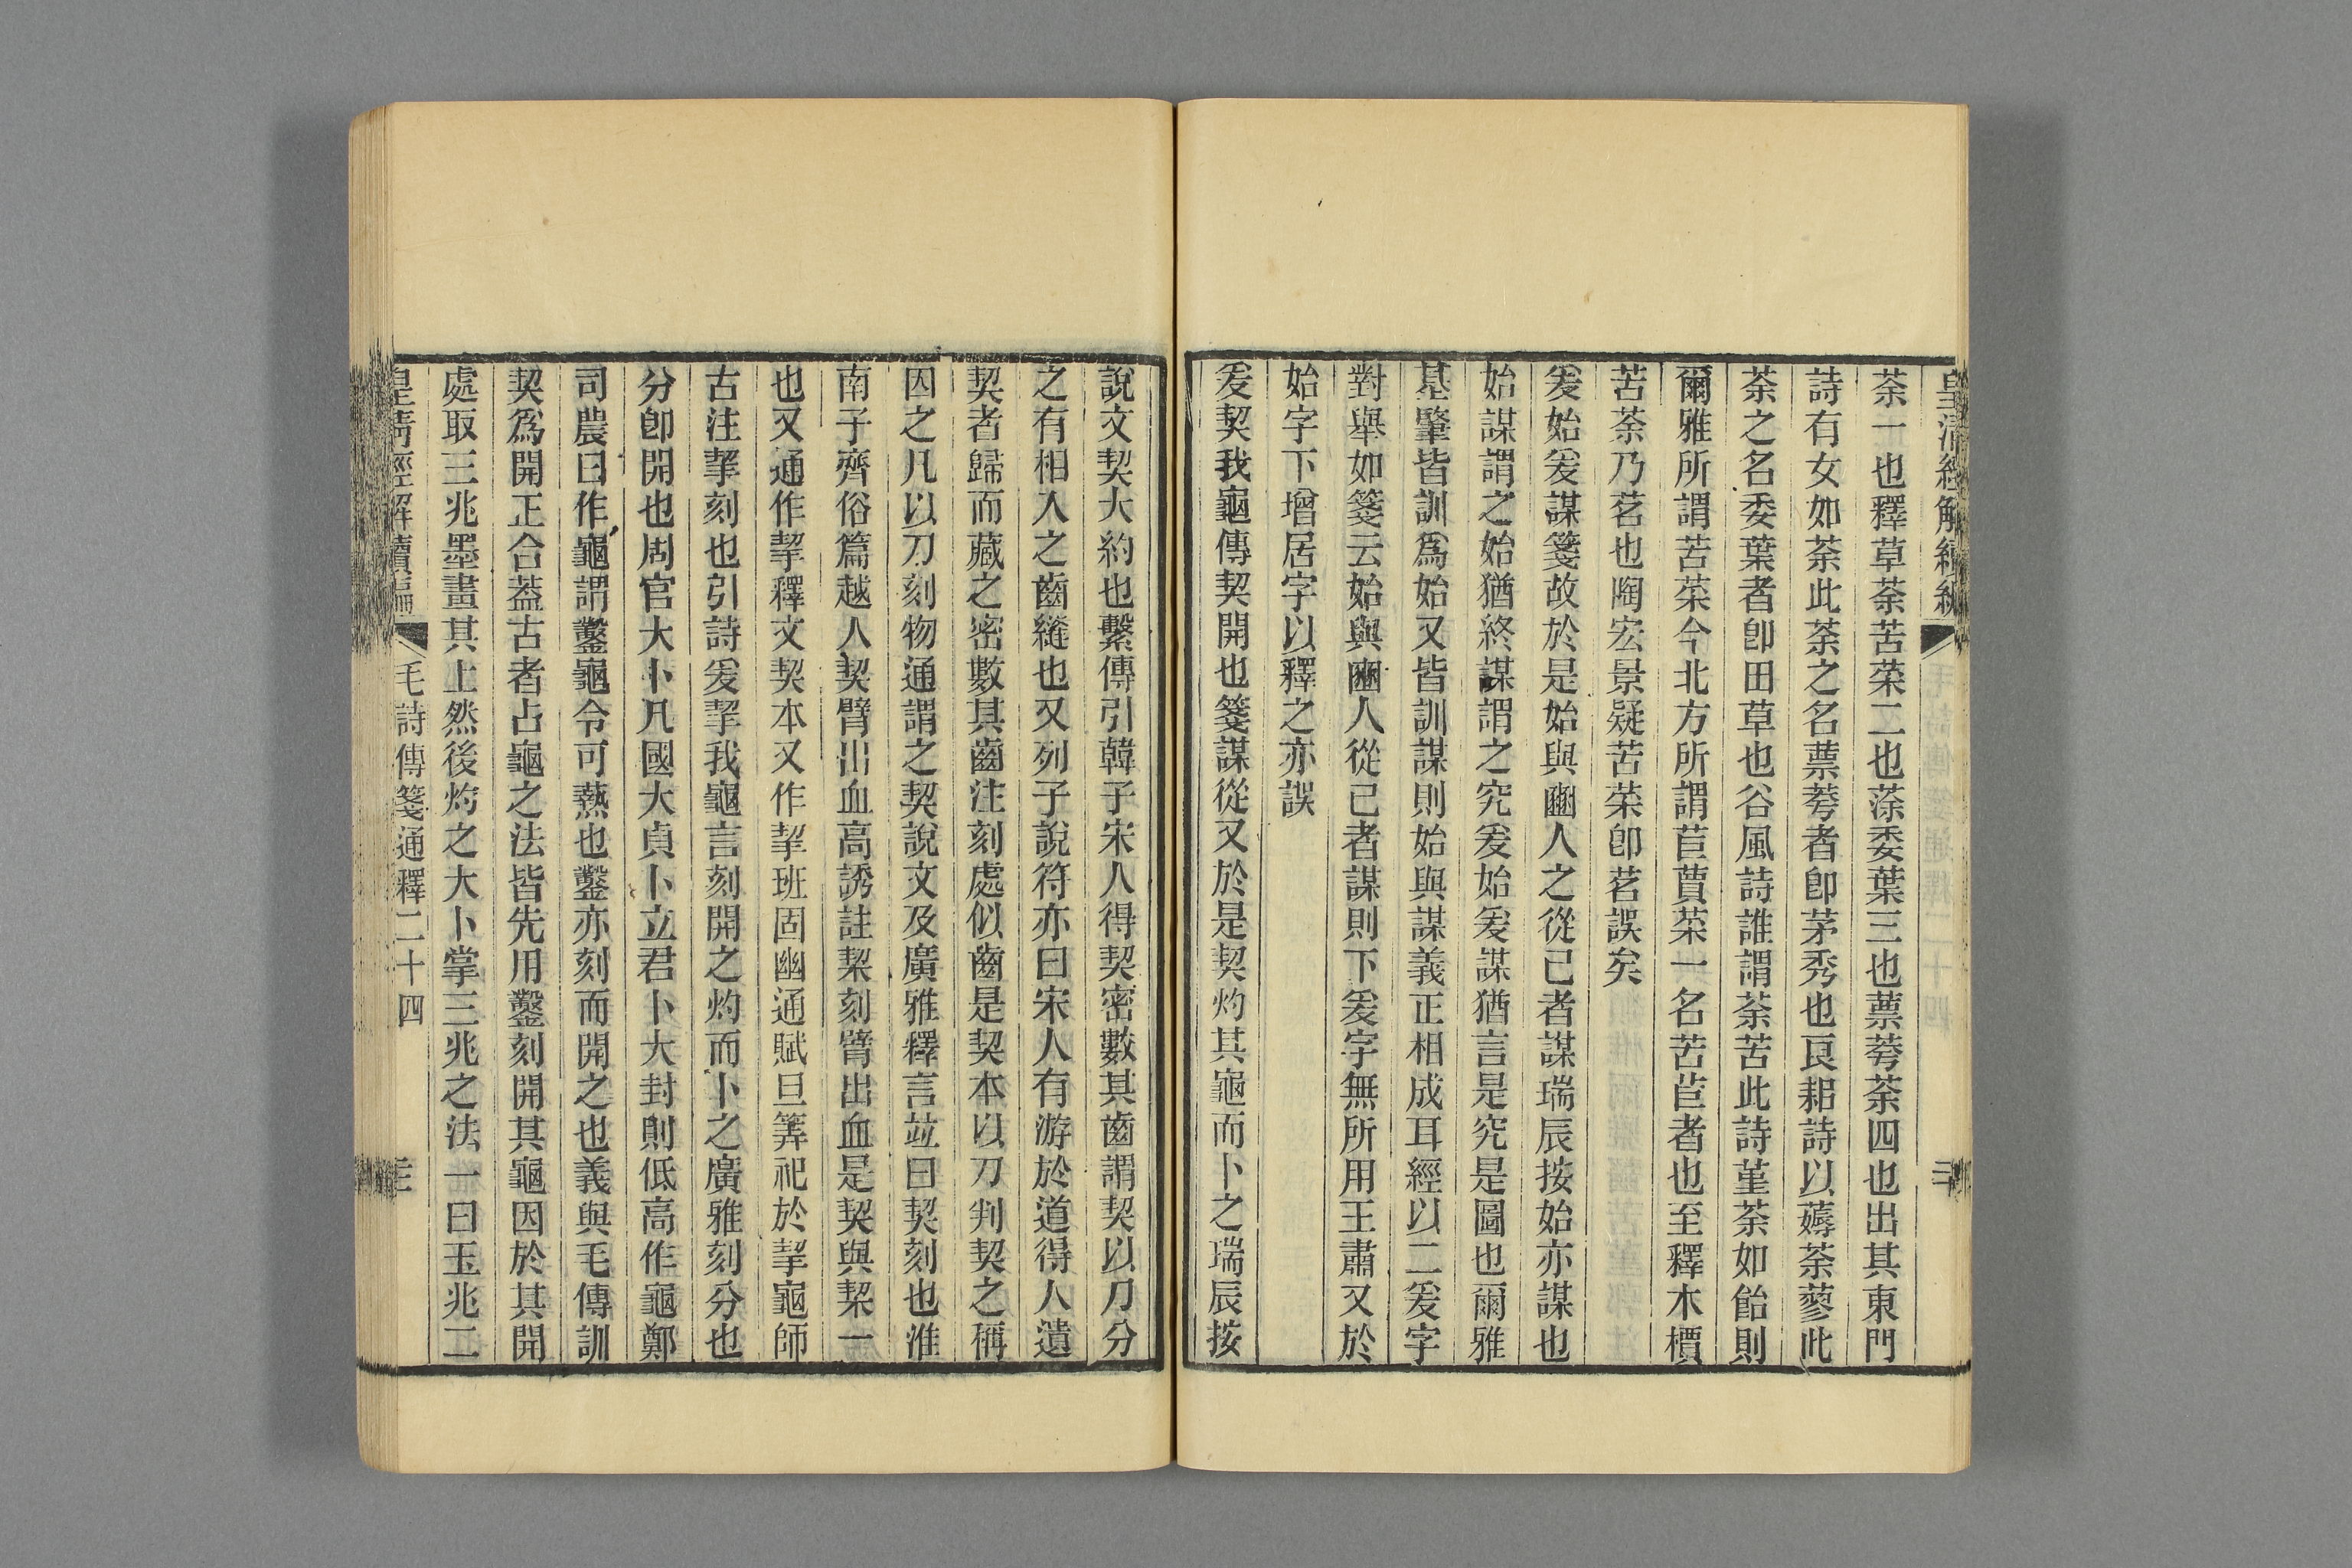 荼一也釋草荼苦菜二也蒤委葉三也蔈荂荼四也出其東門
詩有女如荼此荼之名蔈荂者卽茅秀也良耜詩以薅荼蓼此
荼之名委葉者卽田草也谷風詩誰謂荼苦此詩堇荼如飴則
爾雅所謂苦菜今北方所謂苣蕒菜一名苦苣者也至釋木檟
苦荼乃茗也陶宏景疑苦菜卽茗誤矣
爰始爰謀箋故於是始與豳人之從己者謀瑞辰按始亦謀也
始謀謂之始猶終謀謂之究爰始爰謀猶言是究是圖也爾雅
基肇皆訓爲始又皆訓謀則始與謀義正相成耳經以二爰字
對舉如箋云始與豳人從己者謀則下爰字無所用王肅又於
始字下增居字以釋之亦誤
爰契我龜傳契開也箋謀從又於是契灼其龜而卜之瑞辰按
說文契大約也繫傳引韓子宋人得契密數其齒謂契以刀分
之有相入之齒縫也又列子說符亦曰宋人有游於道得人遺
契者歸而藏之密數其齒注刻處似齒是契本以刀判契之稱
因之凡以刀刻物通謂之契說文及廣雅釋言竝曰契刻也淮
南子齊俗篇越人契臂出血高誘註栔刻臂出血是契與栔一
也又通作挈釋文契本又作挈班固幽通賦旦筭祀於挈龜師
古注挈刻也引詩爰挈我龜言刻開之灼而卜之廣雅刻分也
分卽開也周官大卜凡國大貞卜立君卜大封則眡高作龜鄭
司農曰作龜謂鑿龜令可爇也鑿亦刻而開之也義與毛傳訓
契爲開正合葢古者占龜之法皆先用鑿刻開其龜因於其開
處取三兆墨畫其上然後灼之大卜掌三兆之法一曰玉兆二
皇淸經解續編
毛詩傳箋通釋二十四